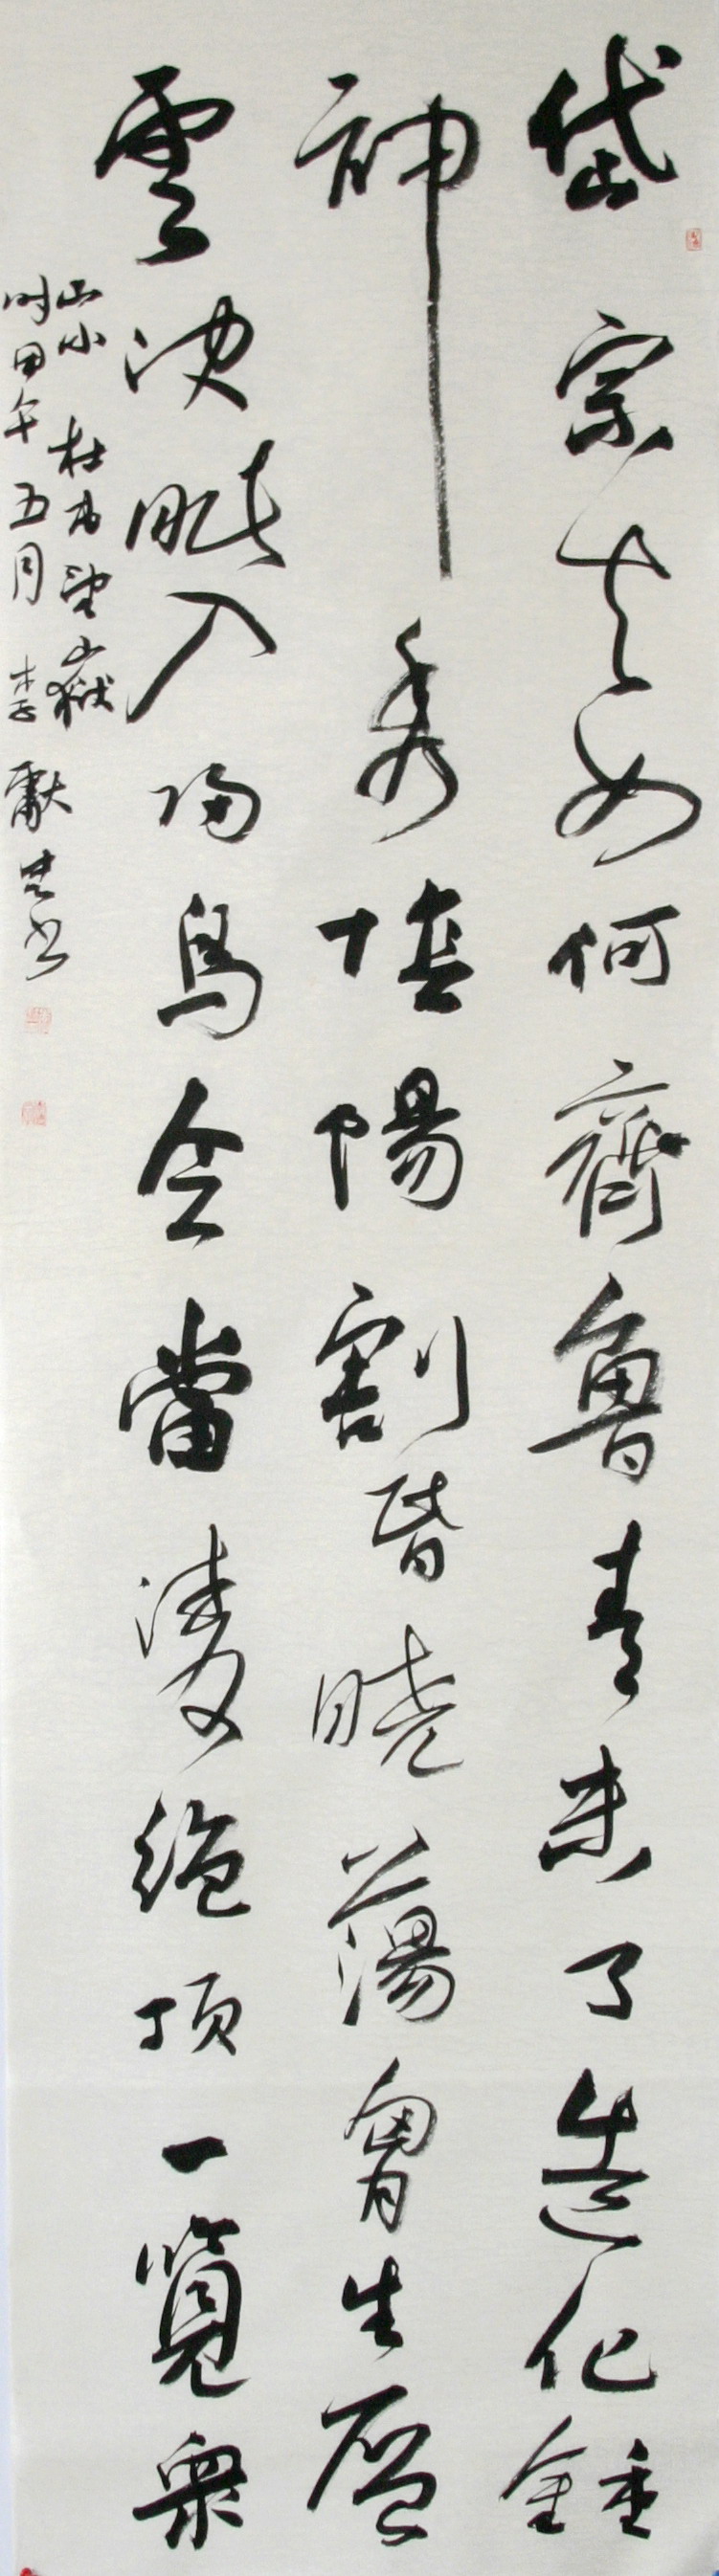 岱宗夫如何齊魯青未了造化鍾
神秀陰陽割昏曉蕩胷生層
雲決眦入歸鳥会當凌絕頂一覽衆
山小 杜甫望嶽
时甲午五月 李獻忠书